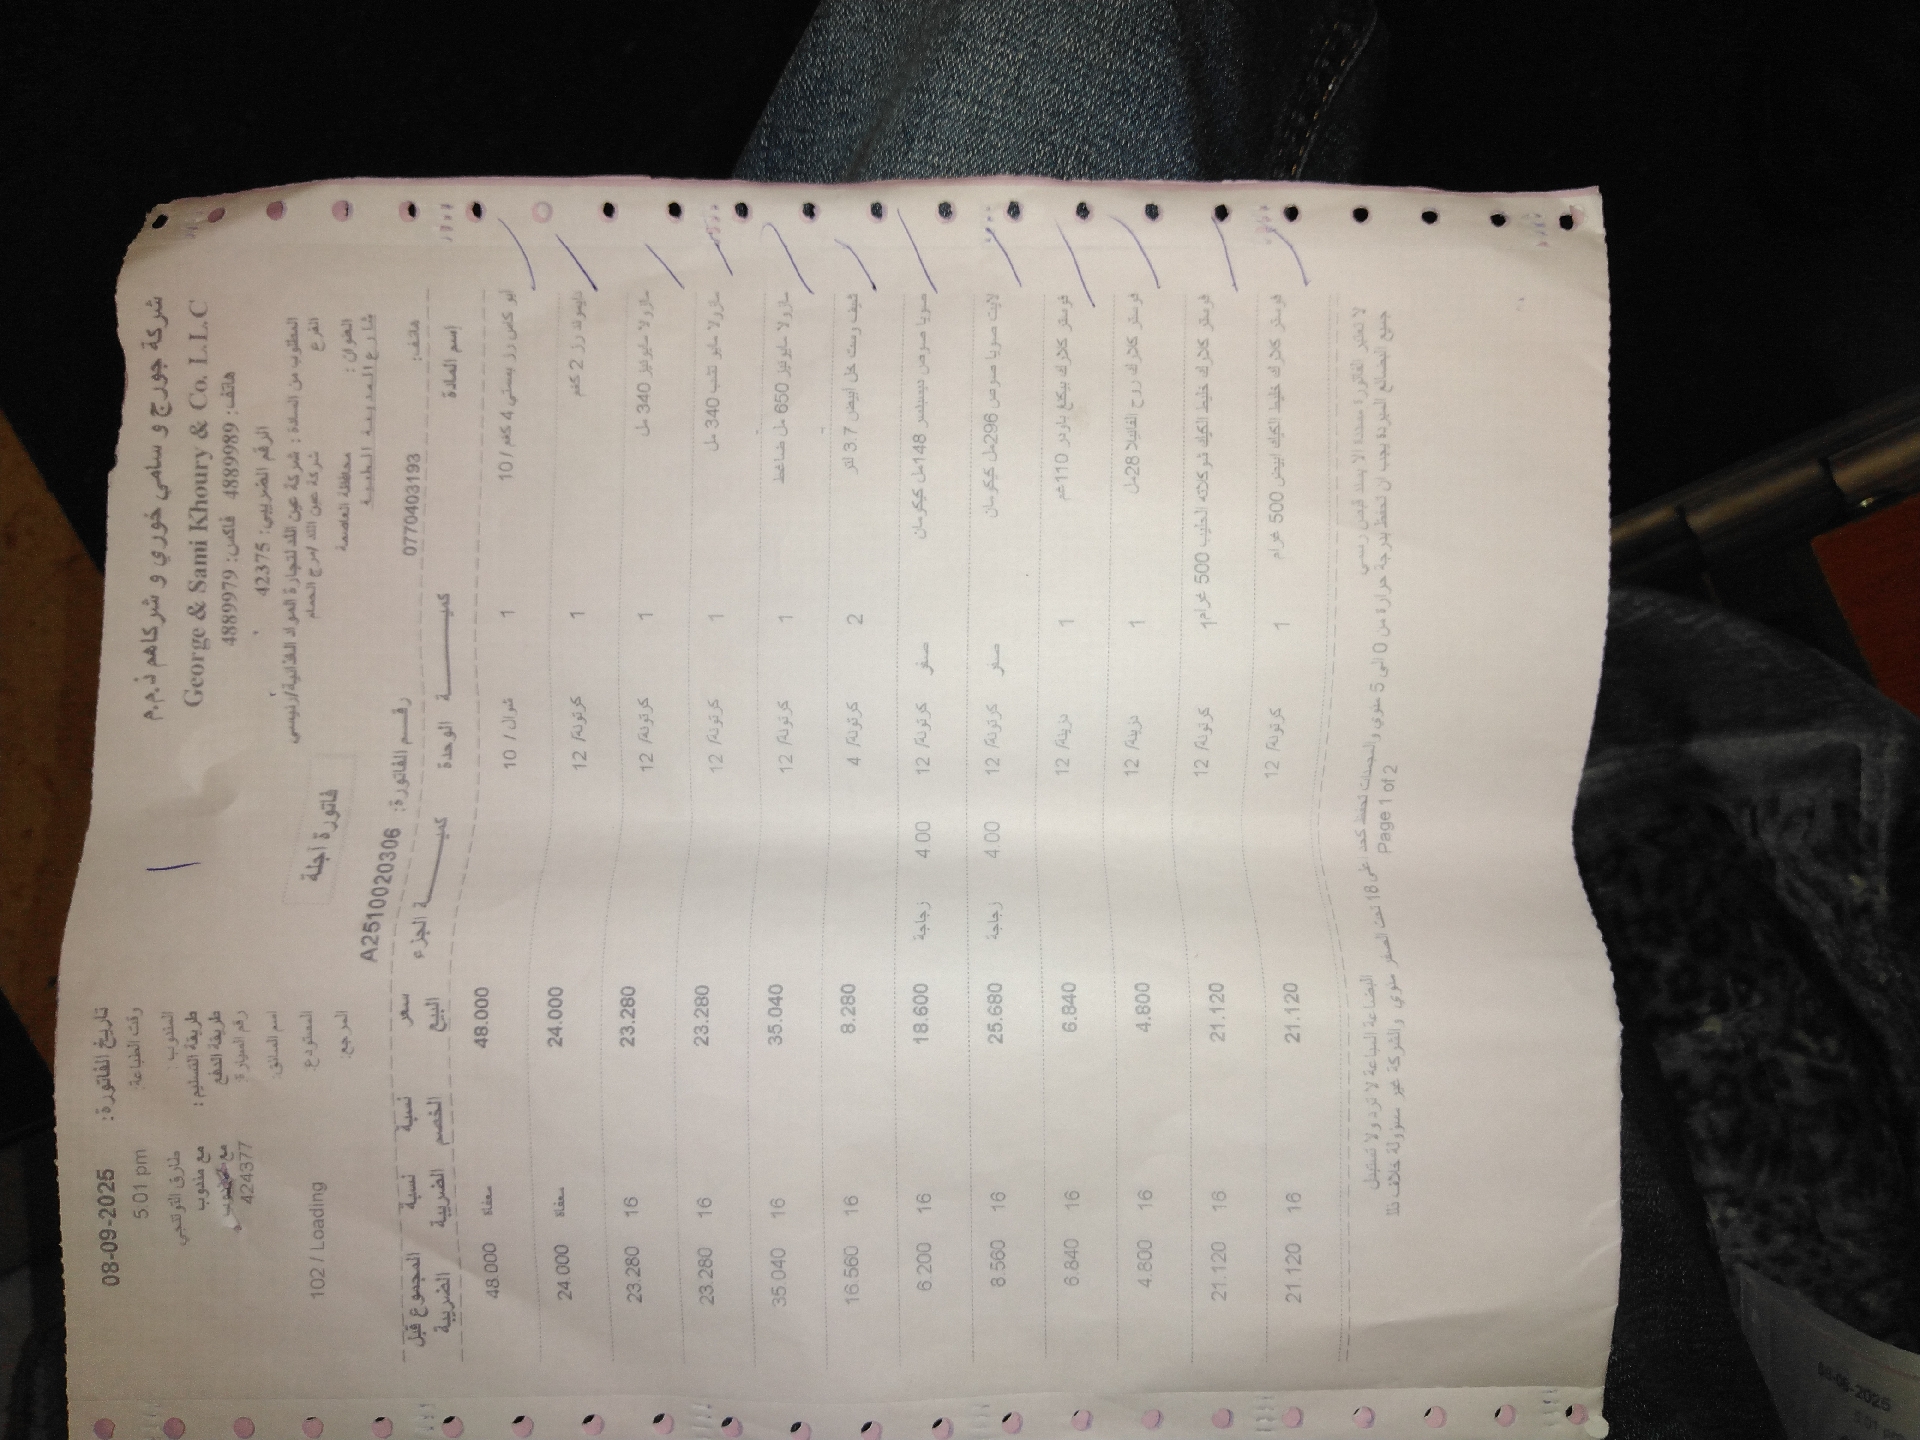 شركة جورج و سامي خوري و شركاهم ذ.م.م
George & Sami Khoury & Co. L.L.C
هاتف: 4889989 فاكس: 4889979
الرقم الضريبي: 42375
المطلوب من السادة : شركة عين الله لتجارة المواد الغذائية/رئيسي
الفرع شركة عين الله /مرج الحمام
العنوان : محافظة العاصمة
شارع المدينة الطبية
هاتف: 0770403193
فاتورة آجلة
رقم الفاتورة: A2510020306
تاريخ الفاتورة: 08-09-2025
وقت الطباعة: 5:01 pm
المندوب: طارق
طريقة التسليم : مع مندوب
طريقة الدفع
رقم السيارة: 424377
اسم السائق:
المستودع: 102 / Loading
المرجع:
إسم المادة كميـــــة الوحدة كميـــــة الجزء سعر البيع نسبة الخصم نسبة الضريبة المجموع قبل الضريبة
ابو كاس رز بسمتي 4 كغم /10 1 شوال / 10 48.000 معفاة 48.000
دايموند رز 2 كغم 1 كرتونة/ 12 24.000 معفاة 24.000
مازولا مايونيز 340 مل 1 كرتونة/ 12 23.280 16 23.280
مازولا مايو 340 مل 1 كرتونة/ 12 23.280 16 23.280
مازولا مايونيز 650 مل ضاغط 1 كرتونة/ 12 35.040 16 35.040
شيف رست خل ابيض 3.7 لتر 2 كرتونة/ 4 8.280 16 16.560
صويا صوص ديسبنسر 148مل كيكومان صفر كرتونة/ 12 4.00 زجاجة 18.600 16 6.200
لايت صويا صوص 296مل كيكومان صفر كرتونة/ 12 4.00 زجاجة 25.680 16 8.560
فوستر كلارك بيكنغ باودر 110غم 1 دزينة/ 12 6.840 16 6.840
فوستر كلارك روح الفانيلا 28مل 1 دزينة/ 12 4.800 16 4.800
فوستر كلارك خليط الكيك شوكلاته الحليب 500 غرام 1 كرتونة/ 12 21.120 16 21.120
فوستر كلارك خليط الكيك ابيض 500 غرام 1 كرتونة/ 12 21.120 16 21.120
لا تعتبر الفاتورة مسددة الا بسند قبض رسمي البضاعة المباعة لا ترد ولا تستبدل
جميع البضائع المبردة يجب ان تحفظ بدرجة حرارة من 0 الى 5 مئوي والمجمدات تحفظ كحد على 18 تحت الصفر مئوي والشركة غير مسؤولة خلاف ذلك
Page 1 of 2